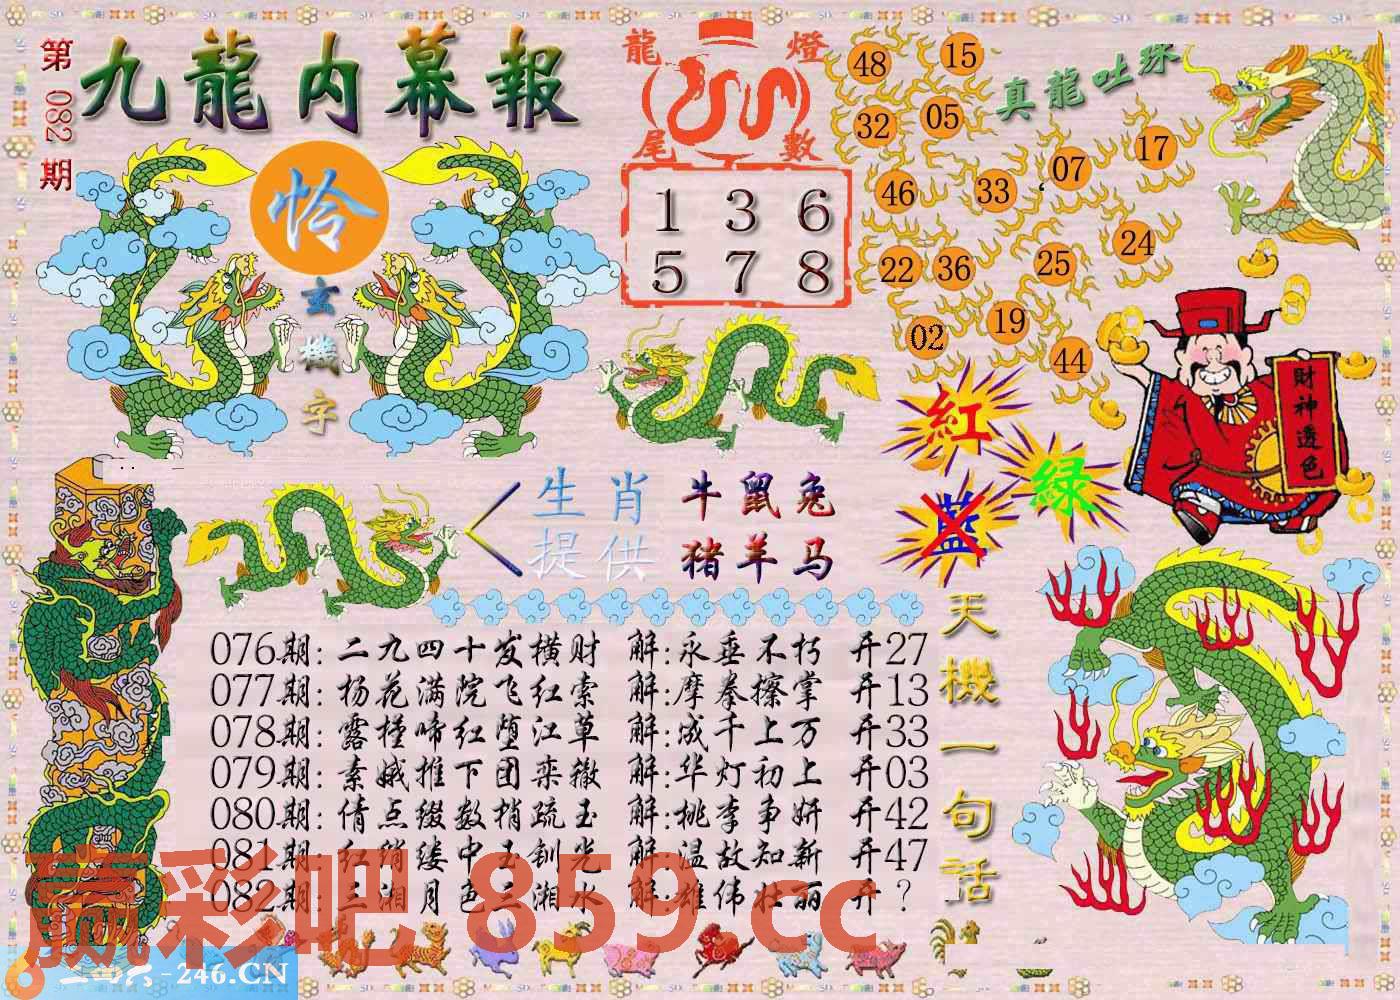 第082期
九龍内幕報
怜
玄機字
龍燈尾數
1 3 6
5 7 8
真龍吐珠
48 15
32 05
46 33 07 17
22 36 25 24
02 19 44
財神透色
紅
绿
藍
生肖提供
牛鼠兔
猪羊马
天機一句話
076期:二九四十发横财 解:永垂不朽 开27
077期:杨花满院飞红索 解:摩拳擦掌 开13
078期:露槿啼红堕江草 解:成千上万 开33
079期:素娥推下团栾辙 解:华灯初上 开03
080期:倩点缀数梢疏玉 解:桃李争妍 开42
081期:红绡缕中玉钏光 解:温故知新 开47
082期:三湘月色三湘水 解:雄伟壮丽 开?
赢彩吧 859.cc
二四六-246.CN